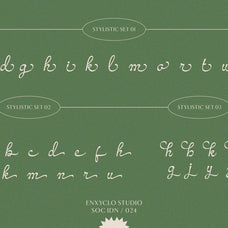 STYLISTIC SET 01
d g h i k l m o r t u
STYLISTIC SET 02
STYLISTIC SET 03
b c d e f h
h h k
k m n r u
g j y
ENXYCLO STUDIO
SOC IDN / 024